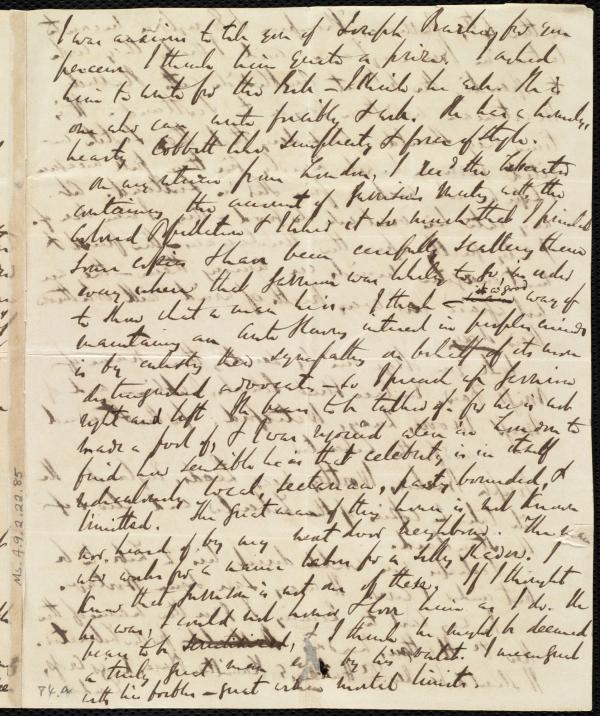 I was anxious to take you of Joseph for you
person I think him quite a prize. I asked
him to write for the Bee - I think he will. He is
one who can write forcibly & well. He has a homely,
hearty Cobbett like simplicity & force of style.
On my return from London, I recd the Liberator
containing the account of Garrison's Meeting with the
Colored Population & I liked it so much that I printed
some copies & have been carefully scattering them
away where that Garrison was likely to go, in order
to show what a man he is. I think it a good way of
maintaining an anti Slavery interest in peoples minds
is by enlisting their sympathies on behalf of its more
distinguished advocates - so I preach up Garrison
right and left. He bears to be talked of - for he is not
made a fool of, & I was rejoiced when in London to
find how sensible he is that celebrity is in itself
ridiculously local, sectarian, party bounded, &
limited. The great man of they home is not known
nor heard of by my next door neighbour. The
who works for a name labors for a silly shadow. I
know that Garrison is not one of these. If I thought
he was, I could not honor & love him as I do. He
bears to be , & I think he might be deemed
a truly great man by his valet. I mean great
with his foibles - great within mortal limits.
74.a
Ms. A.9.2.22.85